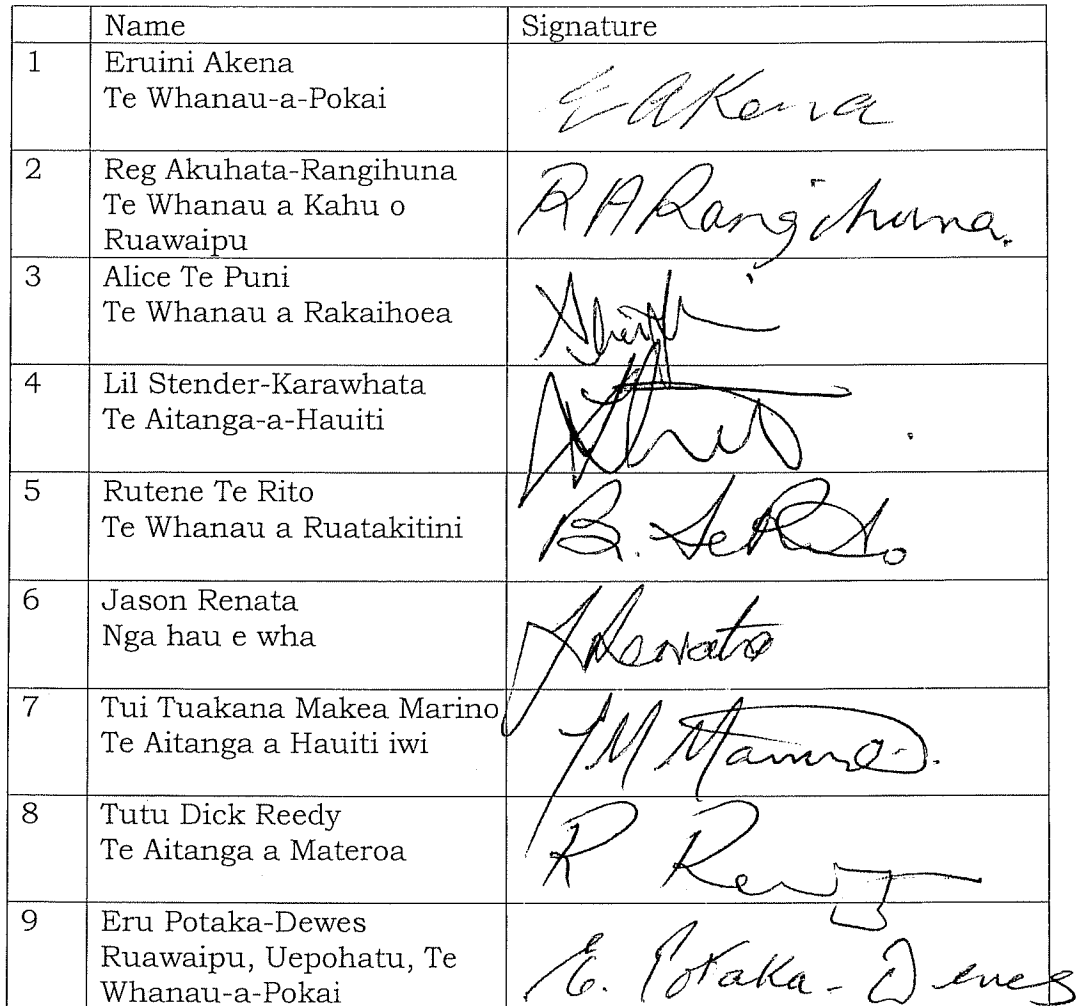 Name Signature
1 Eruini Akena
Te Whanau-a-Pokai
E A Kena
2 Reg Akuhata-Rangihuna
Te Whanau a Kahu o
Ruawaipu
R A Rangihuna.
3 Alice Te Puni
Te Whanau a Rakaihoea
4 Lil Stender-Karawhata
Te Aitanga-a-Hauiti
5 Rutene Te Rito
Te Whanau a Ruatakitini
B. Te Rito
6 Jason Renata
Nga hau e wha
J Renata
7 Tui Tuakana Makea Marino
Te Aitanga a Hauiti iwi
8 Tutu Dick Reedy
Te Aitanga a Materoa
9 Eru Potaka-Dewes
Ruawaipu, Uepohatu, Te
Whanau-a-Pokai
E. Potaka - Dewes